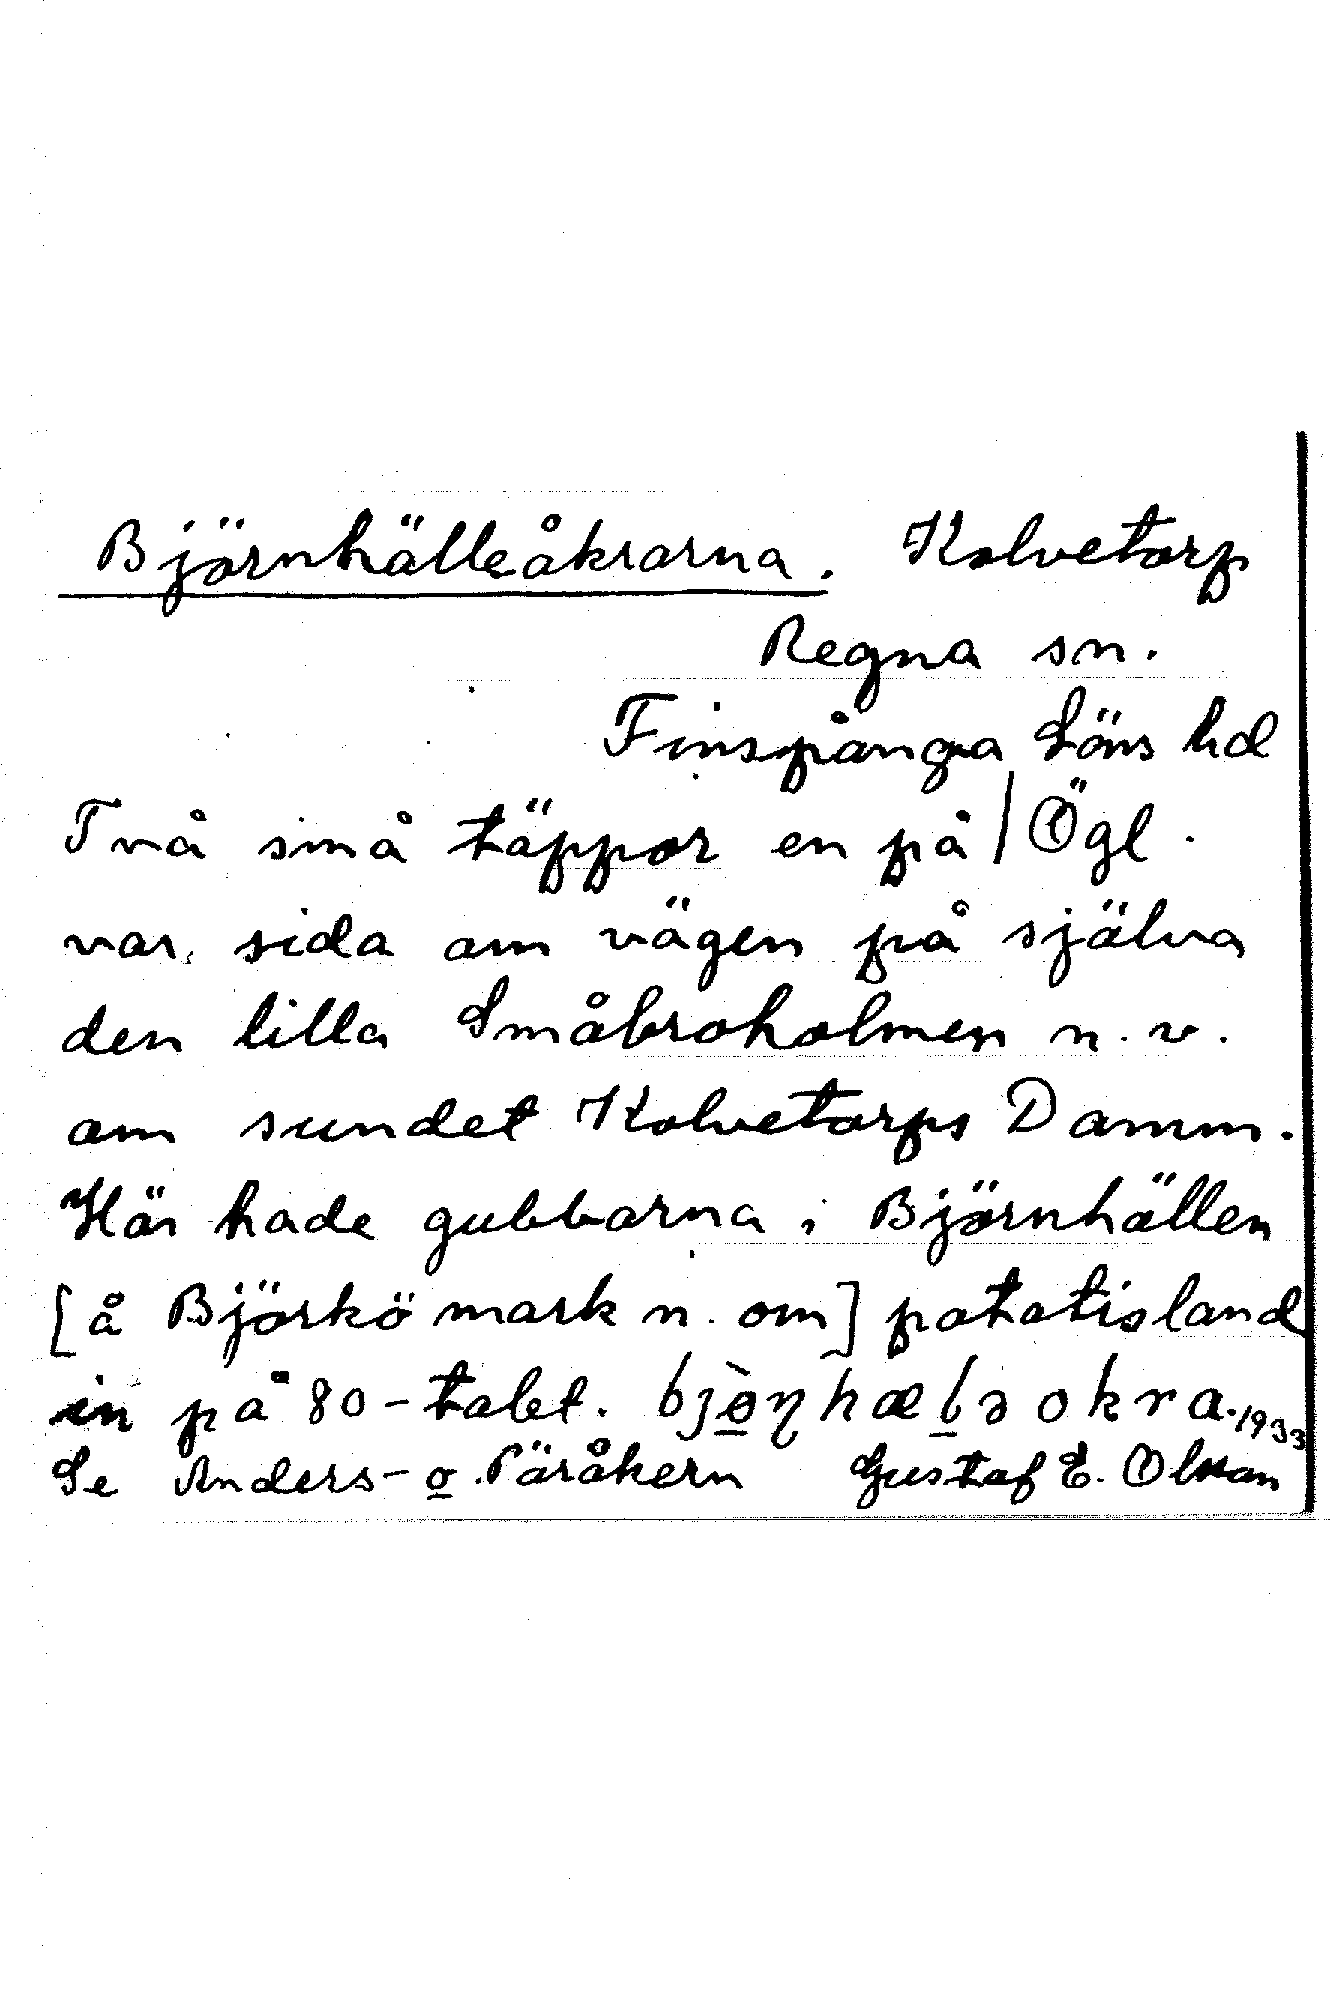 Björnhälleåkrarna. Kolvetorp
Regna sn.
Finspånga Läns hd
Två små täppor en på / Ögl.
var sida om vägen på själva
den lilla Småbroholmen n.v.
om sundet Kolvetorps Damm.
Här hade gubbarna i Björnhällen
[å Björkö mark n. om] potatisland
in på 80-talet. bjò̲ŋhælə okra. 1933
Se Anders- o Päråkern Gustaf E. Olsson